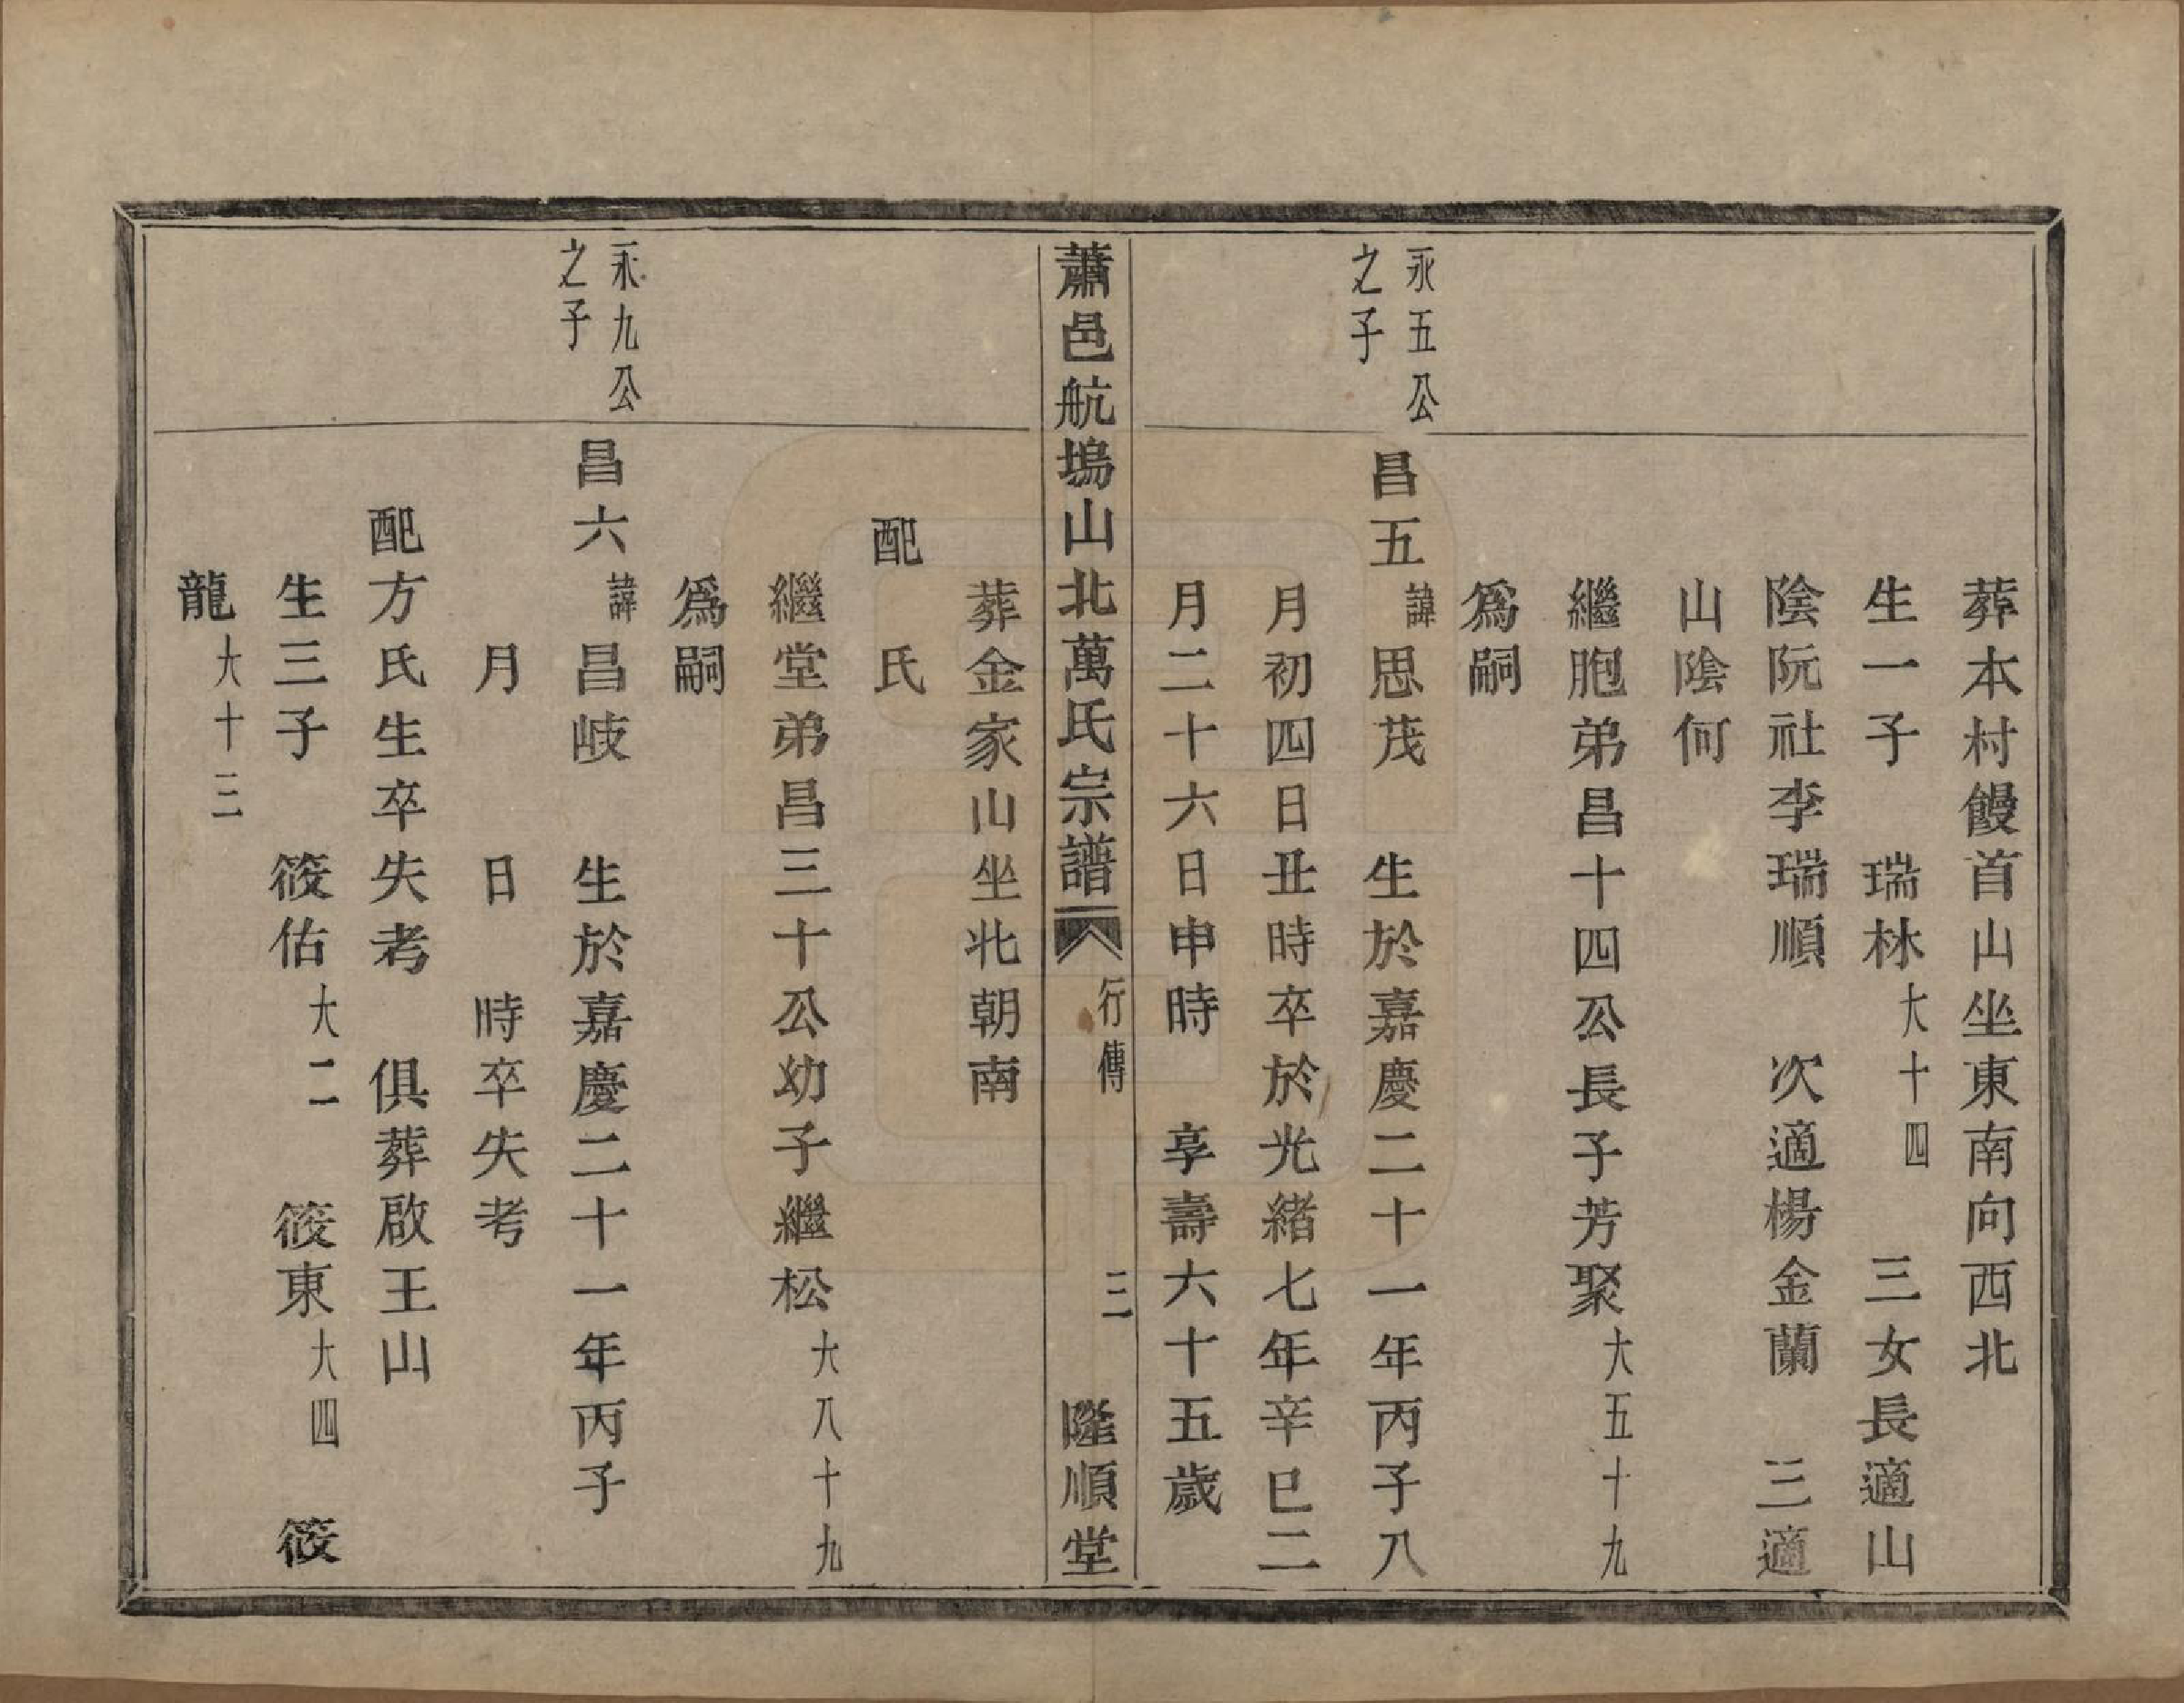 葬本村饅首山坐東南向西北
生一子　瑞林大十四　三女長適山
陰阮社李瑞順　次適楊金蘭　三適
山陰何
繼胞弟昌十四公長子芳聚大五十九
爲嗣
永五公
之子
昌五諱思茂　生於嘉慶二十一年丙子八
月初四日丑時卒於光緒七年辛巳二
月二十六日申時　享壽六十五歲
蕭邑航塢山北萬氏宗譜　行傳　三　隆順堂
葬金家山坐北朝南
配　氏
繼堂弟昌三十公幼子繼松大八十九
爲嗣
永九公
之子
昌六諱昌岐　生於嘉慶二十一年丙子
月　　日　時卒失考
配方氏生卒失考　俱葬啟王山
生三子　筱佑大二　筱東大四　筱
龍大十三